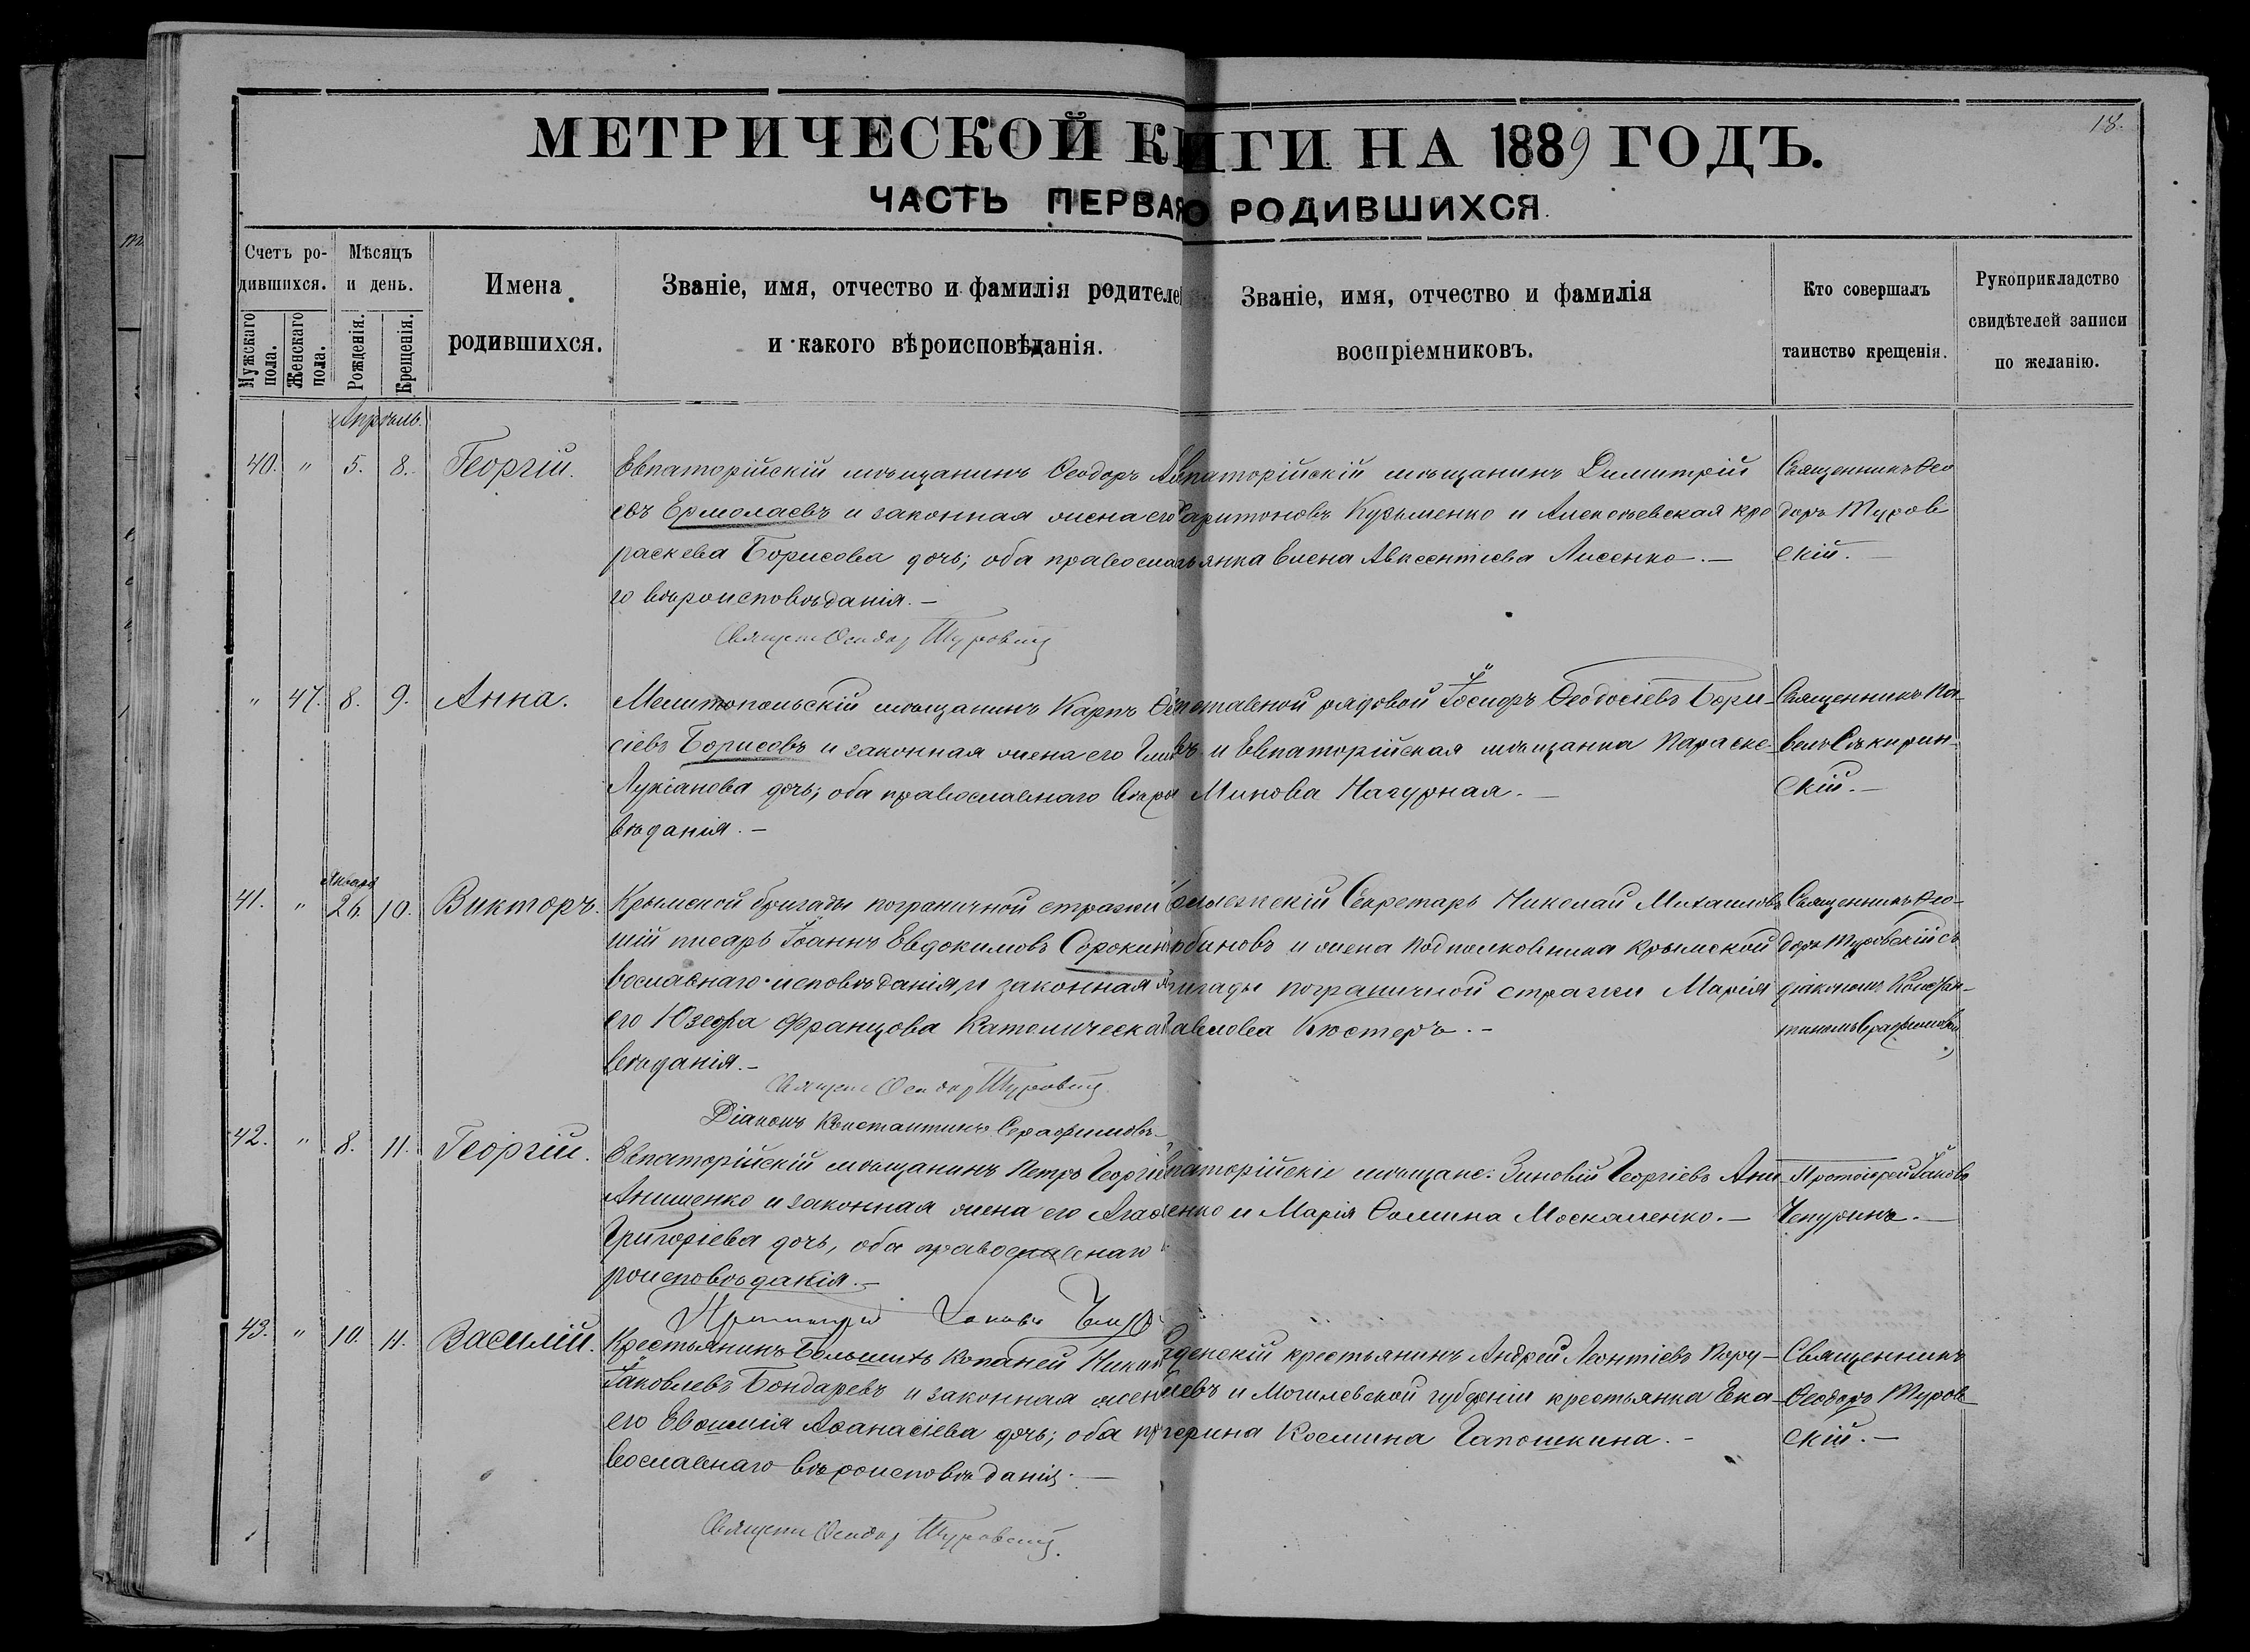 МЕТРИЧЕСКОЙ КНИГИ НА 1889 ГОДЪ.
18.
ЧАСТЬ ПЕРВАЯ О РОДИВШИХСЯ.
Счетъ ро-
дившихся.
Мужскаго пола.
Женскаго пола.
Мѣсяцъ
и день.
Рожденія.
Крещенія.
Имена
родившихся.
Званіе, имя, отчество и фамилія родителе
и какого вѣроисповѣданія.
Званіе, имя, отчество и фамилія
воспріемниковъ.
Кто совершалъ
таинство крещенія.
Рукоприкладство
свидѣтелей записи
по желанію.
Апрѣль.
40. " 5. 8. Георгій.
Евпаторійскій мѣщанинъ Ѳеодоръ
евъ Ермолаевъ и законная жена его
раскева Борисова дочь; оба правосла
го вѣроисповѣданія.—
Священ Ѳеодор Туровскій
паторійскій мѣщанинъ Димитрій
аритоновъ Кузьменко и Алексѣевская кре
янка Елена Авксентіева Лисенко.—
Священникъ Ѳео
доръ Туров
скій.—
" 47. 8. 9. Анна.
Мелитопольскій мѣщанинъ Карпъ
сіевъ Борисовъ и законная жена его
Лукіанова дочь; оба православнаго вѣро
вѣданія.—
ставной рядовой Іосифъ Ѳеодосіевъ Бори-
въ и Евпаторійская мѣщанка Параске-
Минова Нагурная.—
Священникъ Па-
велъ Сѣкирин-
скій.—
Января
41. " 26. 10. Викторъ.
Крымской бригады пограничной стражи
шій писарь Іоаннъ Евдокимовъ Сорокин
вославнаго исповѣданія, и законная
его Юзефа Францова Католическа
вѣданія.—
Священ Ѳеодор Туровскій
Діаконъ Константинъ Серафимовъ
Секретарь Николай Михаиловъ
биновъ и жена Подполковника Крымской
ригады пограничной стражи Марія
авлова Кюстеръ.—
Священникъ Ѳео-
доръ Туровскій съ
діакономъ Констан-
тиномъ Серафимовы
42. " 8. 11. Георгій.
Евпаторійскій мѣщанинъ Петръ Георгіе
Анишенко и законная жена его Агаѳ
Григоріева дочь, оба православнаго
роисповѣданія.—
Протоіерей Іаковъ
паторійскіе мѣщане: Зиновій Георгіевъ Ани
енко и Марія Ѳомина Москаленко.—
Протоіерей Іаковъ
Чепуринъ.—
43. " 10. 11. Василій.
Крестьянинъ Большихъ Копаней Ники
Іаковлевъ Бондаревъ и законная жен
его Евѳимія Аѳанасіева дочь; оба пр
вославнаго вѣроисповѣданія.—
Священ Ѳеодор Туровскій.
денскій крестьянинъ Андрей Леонтіевъ Пору-
евъ и Могилевской губерніи крестьянка Ека-
терина Космина Гапошкина.—
Священникъ
Ѳеодоръ Туров
скій.—